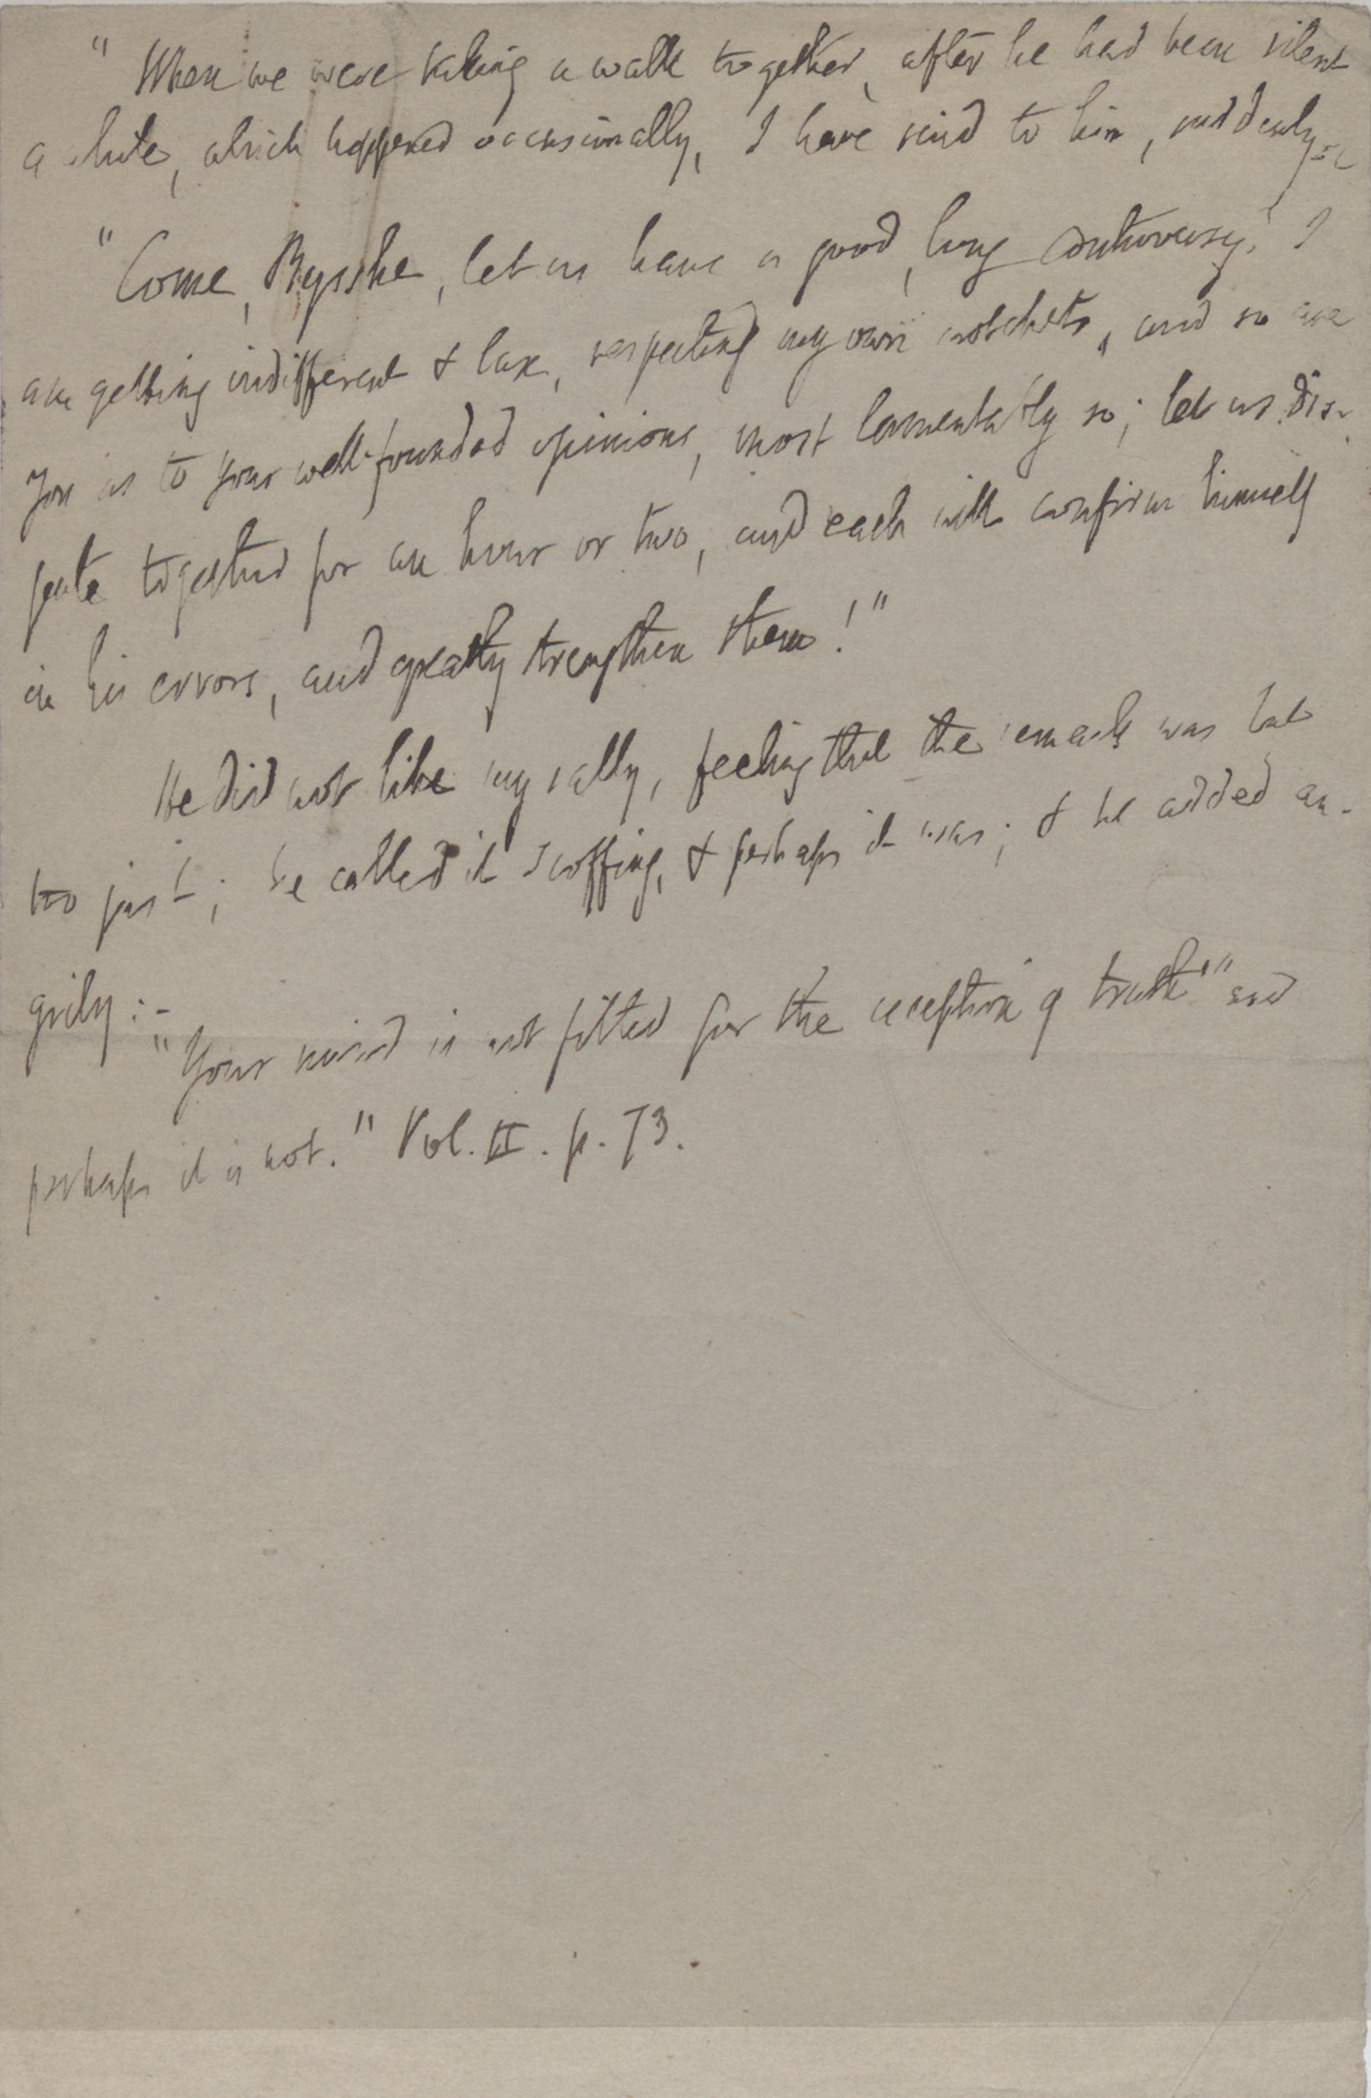 " When we were taking a walk together, after he had been silent
a while, which happened occasionally, I have said to him, suddenly :-
" Come, Bysshe, let us have a good, long controversy! I
am getting indifferent & lax, respecting my own crotchets, and so are
you as to your well-founded opinions, most lamentably so; let us dis-
pute together for an hour or two, and each will confirm himself
in his errors, and greatly strengthen them!"
He did not like my rally, feeling that the remark was but
too just; he called it scoffing, & perhaps it was; & he added an-
grily :-
"Your mind is not fitted for the reception of truth!" and
perhaps it is not." Vol. II. p. 73.